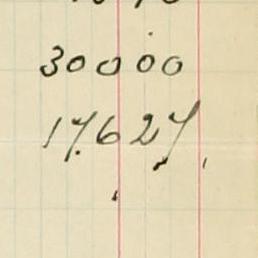 30000
17627